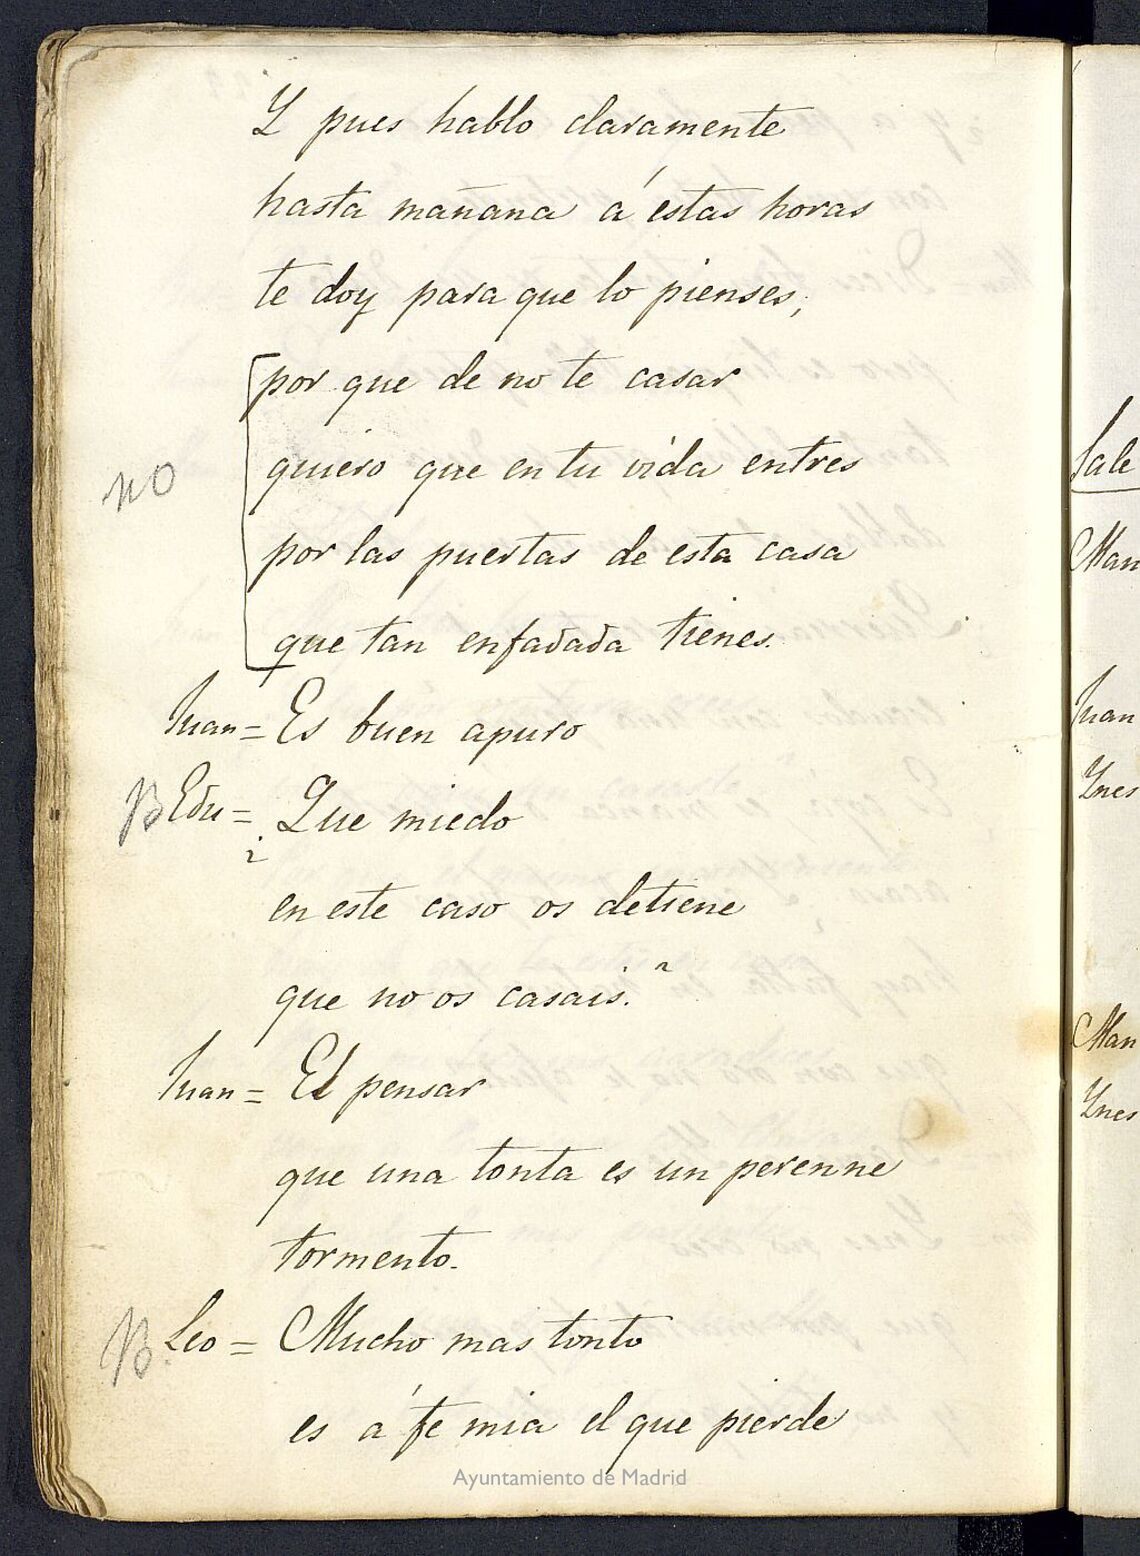 Y pues hablo claramente
hasta mañana á estas horas
te doy para que lo pienses;
por que de no te casar
no
quiero que en tu vida entres
por las puertas de esta casa
que tan enfadada tienes.
Juan = Es buen apuro
B Edu = ¿Que miedo
en este caso os detiene
que no os casais?
Juan = El pensar
que una tonta es un perenne
tormento.
B Leo = Mucho mas tonto
es á fe mia el que pierde
Ayuntamiento de Madrid
Sale
Man
Juan
Ynes
Man
Ynes